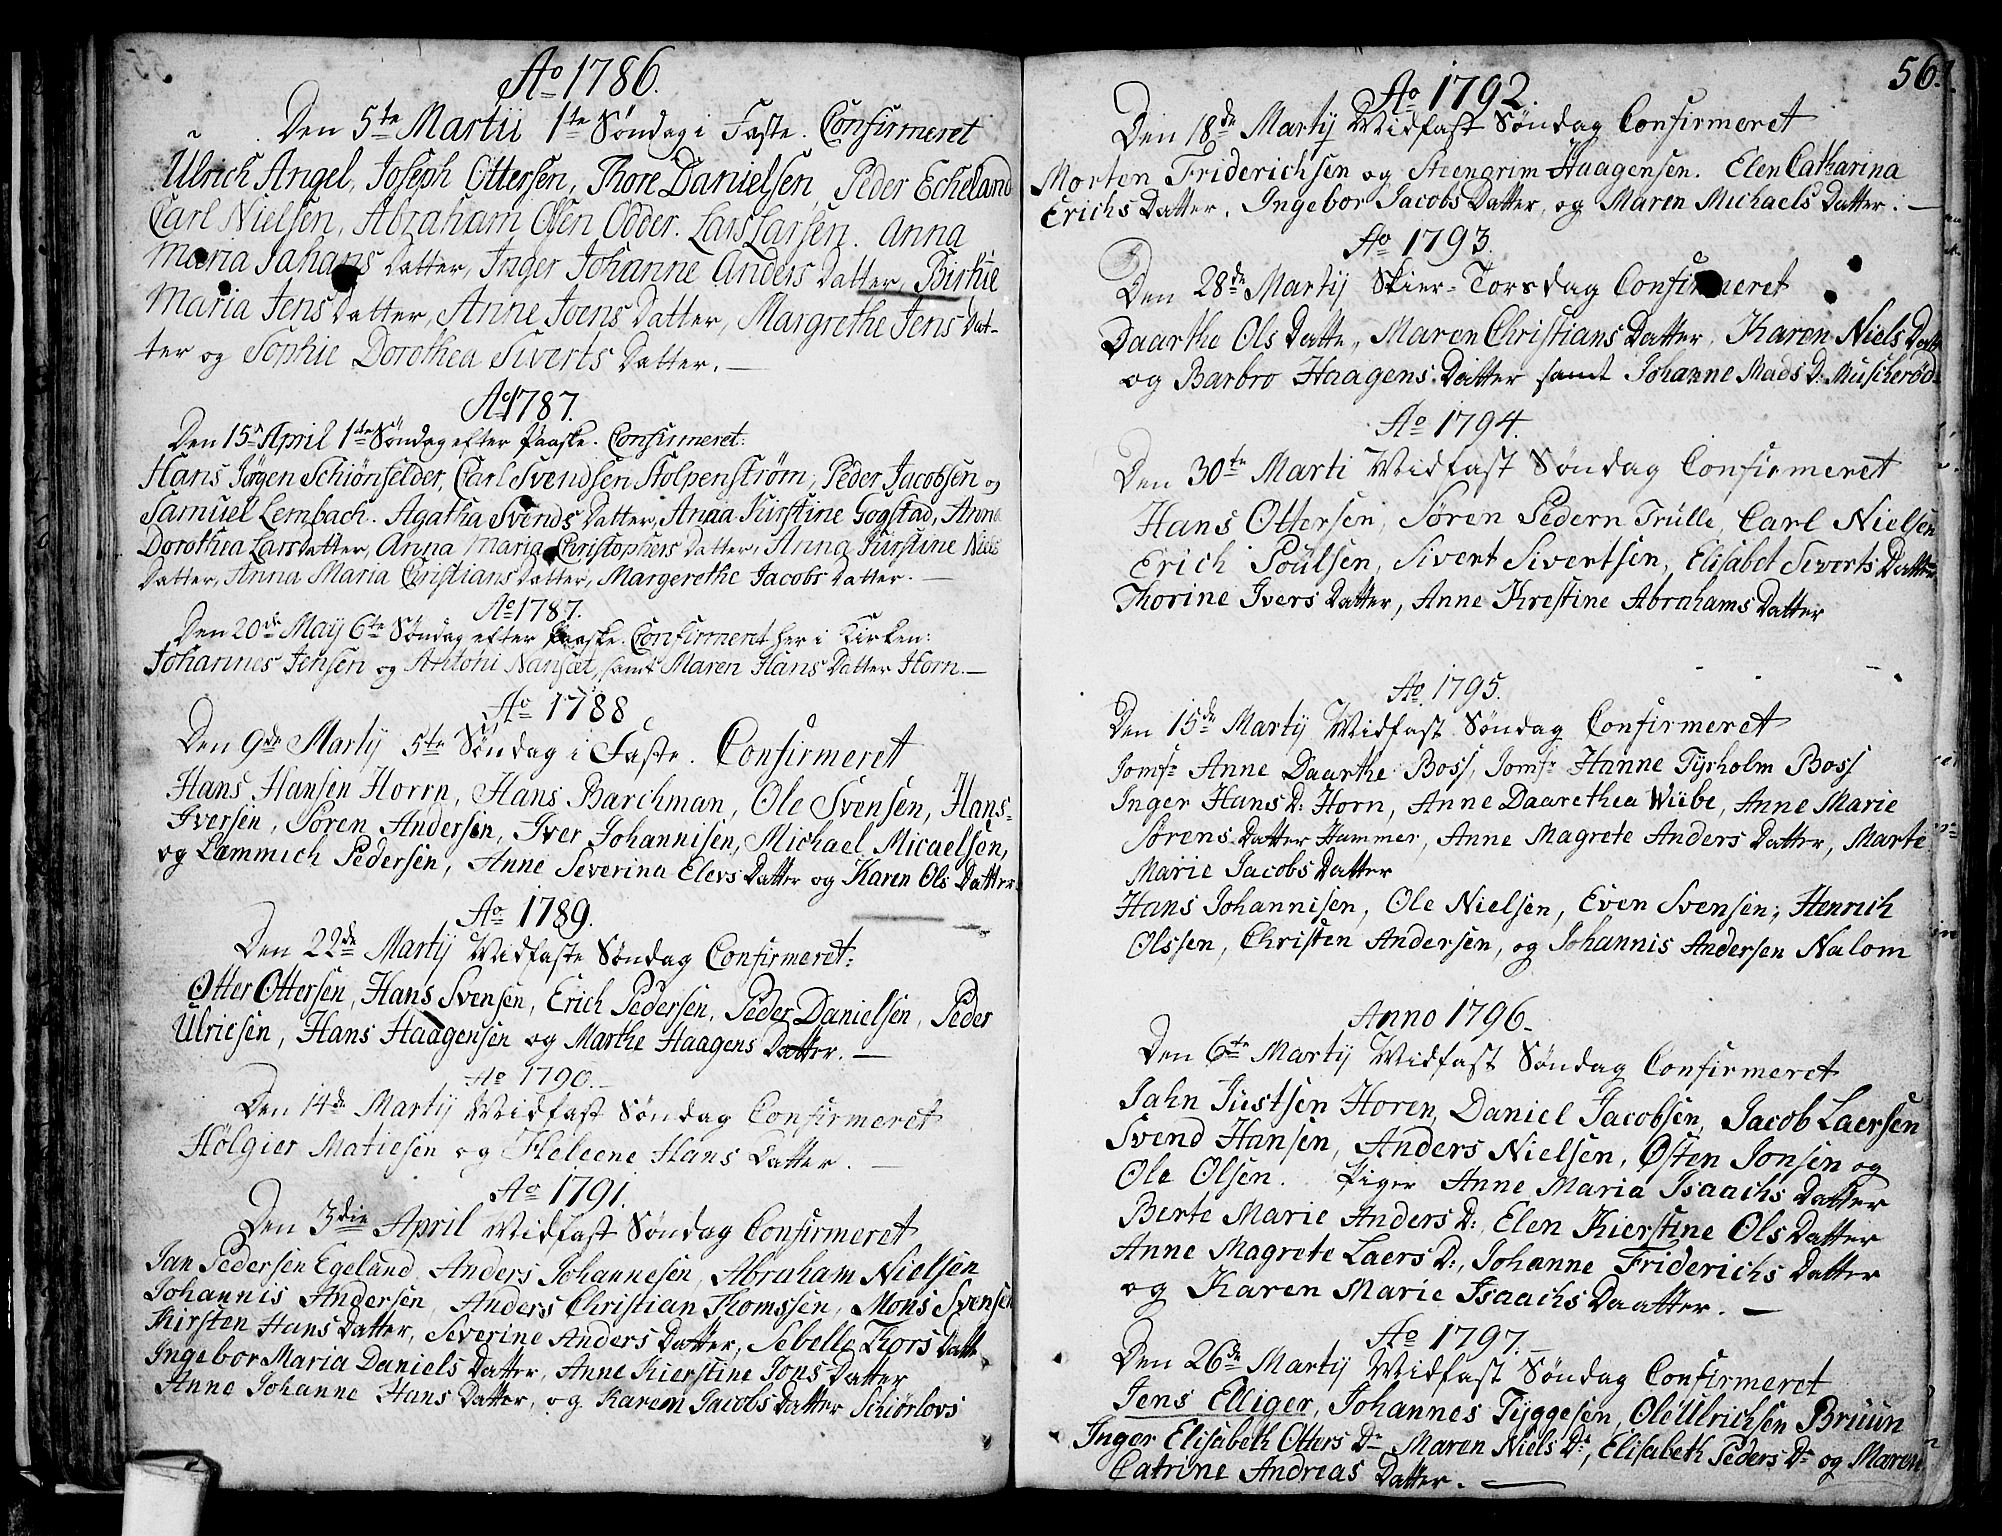 Ao 1786.
Den 5te Martii 1te Søndag i Faste. Confirmeret
Ulrich Angel, Joseph Ottersen, Thore Danielsen, Peder Echeland
Carl Nielsen, Abraham Olsen Odder. Lars Larsen. Anna
Maria Jahans Datter, Inger Johanne Anders Datter, Birthe
Maria Jens Datter, Anne Joens Datter, Margrethe Jens Dat-
ter og Sophie Dorothea Siverts Datter.
Ao 1787.
Den 15de April 1te Søndag efter Paaske. Confirmeret:
Hans Jørgen Schiönfelder, Carl Svendsen Stolpenström, Peder Jacobsen og
Samuel Lembach. Agatha Svends Datter, Anna Kirstine Gogstad, Anna
Dorothea Lars Datter, Anna Maria Christophers Datter, Anna Kirstine Niels
Datter, Anna Maria Christians Datter, Margerethe Jacobs Datter.
Ao 1787.
Den 20de Maÿ 6te Søndag efter Paaske. Confirmeret her i Kirken:
Johannes Jensen og Antoni Nanset, samt Maren Hans Datter Horn.
Ao 1788
Den 9de Martÿ 5te Søndag i Faste. Confirmeret
Hans Hansen Horrn, Hans Barchman, Ole Svensen, Hans-
Iversen, Søren Andersen, Iver Johannisen, Michael Micaelsen,
og Læmmich Pedersen, Anne Severina Elevs Datter og Karen Ols Datter
Ao 1789.
Den 22de Martÿ Midfaste Søndag Confirmeret:
Otter Ottersen, Hans Svensen, Erich Pedersen, Peder Danielsen, Peder
Ulricsen, Hans Haagensen og Marthe Haagens Datter.
Ao 1790.
Den 14de Martÿ Midfast Søndag Confirmeret
Hølgier Matiesen og Heleene Hans Datter.
Ao 1791.
Den 3die April Midfast Søndag Confirmeret
Jan Pedersen Egeland, Anders Johannesen, Abraham Nielsen
Johannis Andersen, Anders Christian Thomssen, Mons Svensen
Kirsten Hans Datter, Severine Anders Datter, Sebelle Thors Datte
Ingebor Maria Daniels Datter, Anne Kierstine Jons Datter
Anne Johanne Hans Datter, og Karen Jacobs Datter Schiörlovs
56.
Ao 1792.
Den 18de Martÿ Midfast Søndag Confirmeret
Morten Friderichsen og Steengrim Haagensen. Elen Catharina
Erichs Datter, Ingebor Jacobs Datter, og Maren Michaels Datter.
Ao 1793.
Den 28de Martÿ Skier-Torsdag Confirmeret
Daarthe Ols Datte, Maren Christians Datter, Karen Niels Datt
og Barbro Haagens Datter samt Johanne Mads D: Muscherød
Ao 1794.
Den 30te Marti Midfast Søndag Confirmeret
Hans Ottersen, Søren Pedern Trulle, Carl Nielsen
Erich Poulsen, Sivert Sivertsen, Elisabet Siverts Datter
Thorine Ivers Datter, Anne Krestine Abrahams Datter
Ao. 1795.
Den 15de Martÿ Midfast Søndag Confirmeret
Jomfr Anne Daarthe Boss, Jomfr Hanne Tyrholm Boss
Inger Hans D: Horn, Anne Daarethea Wiibe, Anne Marie
Sørens Datter Hammer, Anne Magrete Anders Datter, Marte
Marie Jacobs Datter
Hans Johannisen, Ole Nielsen, Even Svensen, Henrich
Olssen, Christen Andersen, og Johannis Andersen Nalom
Anno 1796.
Den 6te Martÿ Midfast Søndag Confirmeret
Jahn Justsen Horen, Daniel Jacobsen, Jacob Laersen
Svend Hansen, Anders Nielsen, Østen Jonsen og
Ole Olsen. Piger Anne Maria Isaachs Datter
Berte Marie Anders D:, Elen Kierstine Ols Datter
Anne Magrete Laers D:, Johanne Friderichs Datter
og Karen Marie Isaachs Daatter.
Ao 1797.
Den 26de Martÿ Midfast Søndag Confirmeret
Jens Elliger, Johannes Tyggesen, Ole Ulrichsen Bruun
Inger Elisabeth Otters Dr Maren Niels Dr, Elisabeth Peders Dr og Maren
Catrine Andreas Datter.